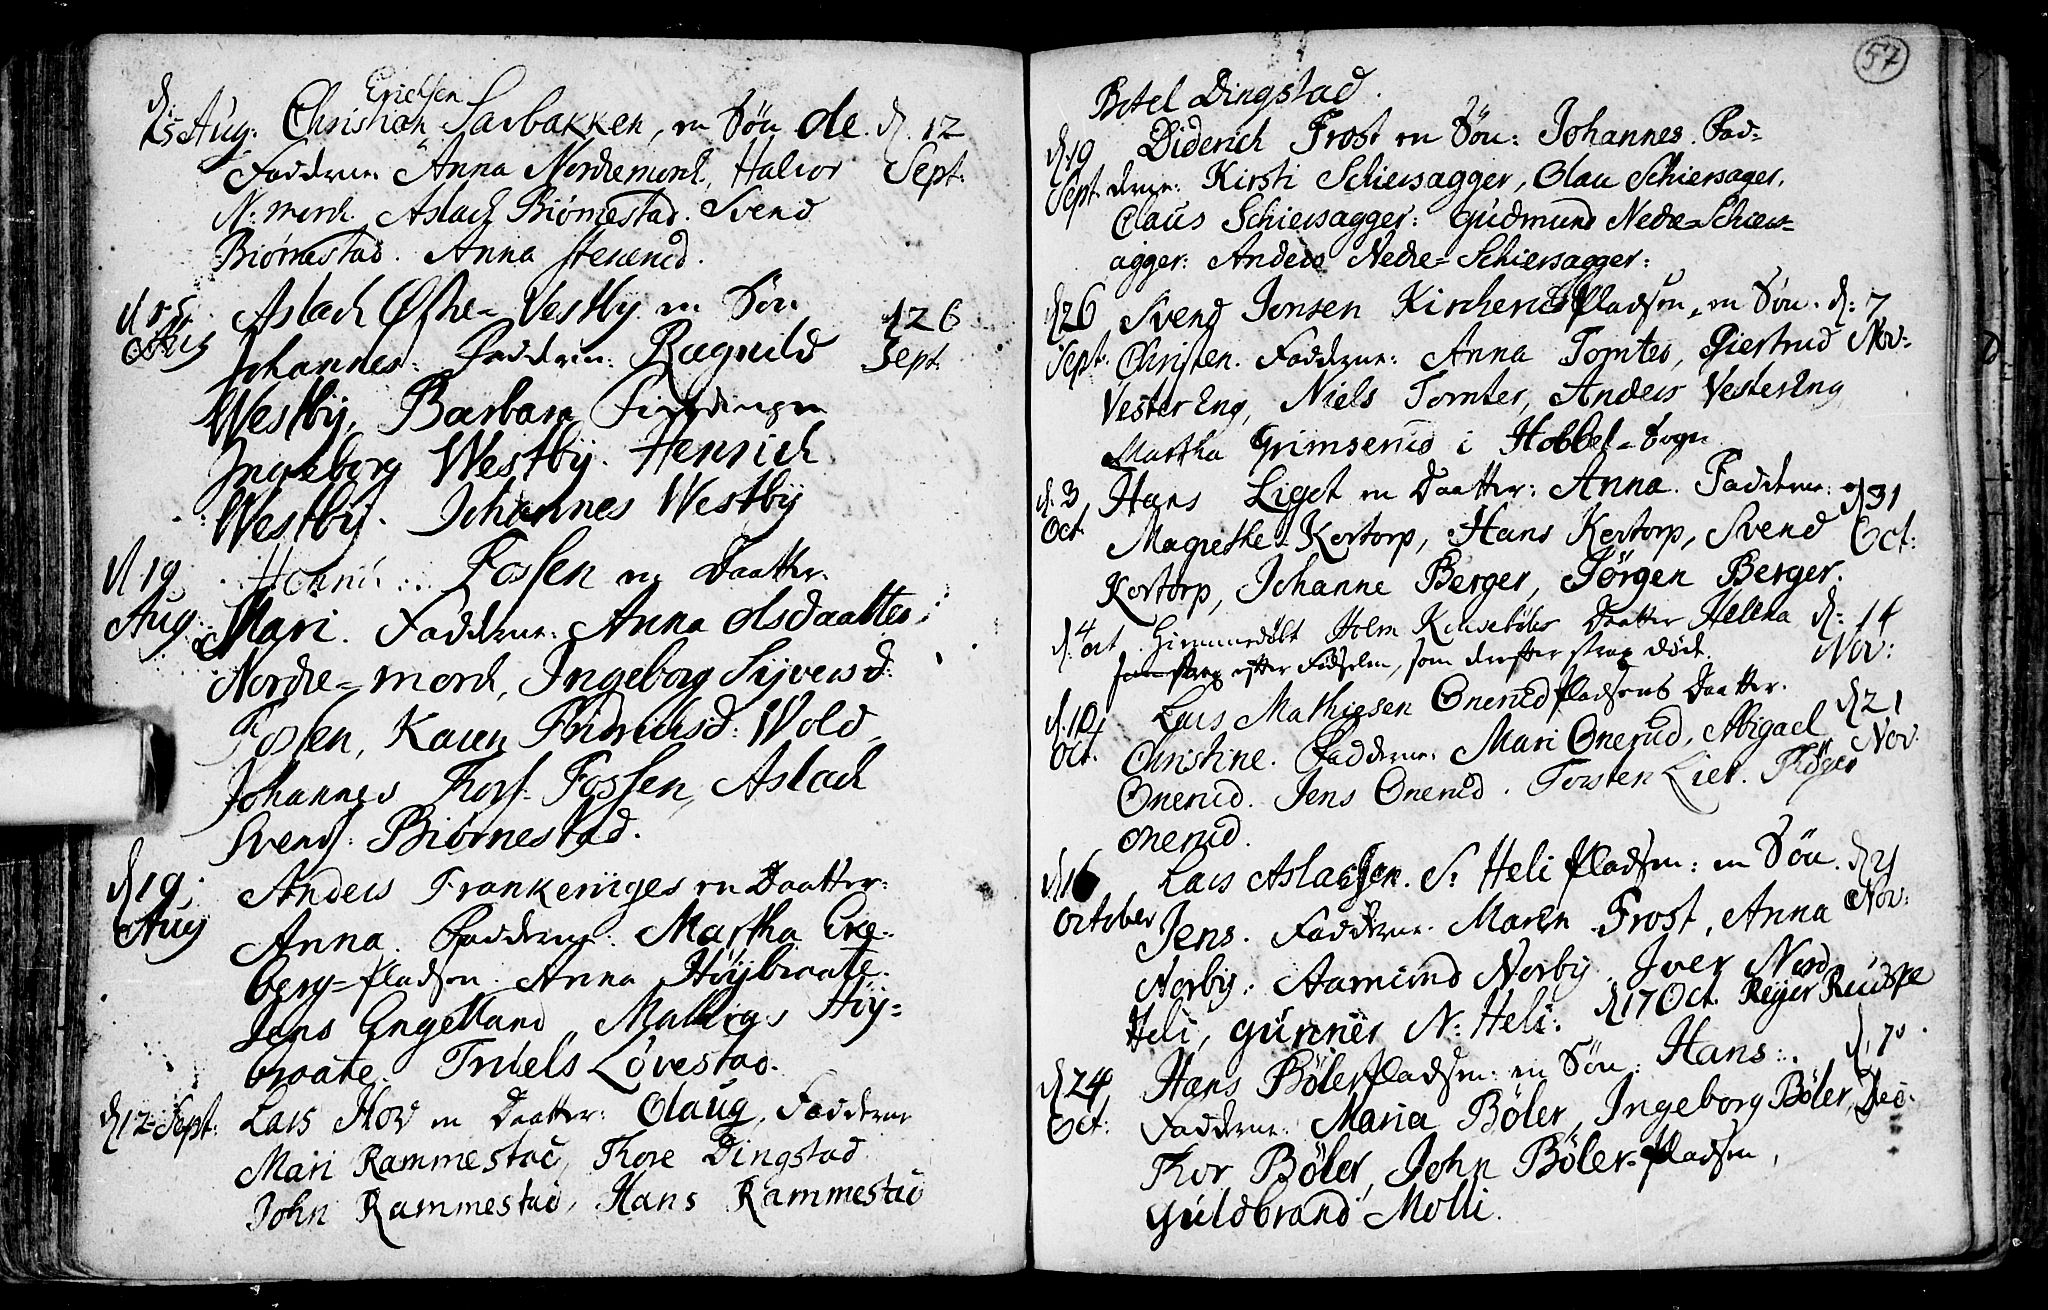 Erichsen
d. 15 Aug: Christian Sarbakken, en Søn Ole. d. 12
Faddere Anna Nordremorck, Halvor Sept:
N: morck. Aslach Biørnestad. Svend
Biørnestad. Anna Stenerud.
d 15 Aslach Østre=Vestby en Søn d 26
Aug Johannes: Faddere: Ragnild Sept.
Westby, Barbara Fierdingen
Ingeborg Westby. Henrich
Westby. Johannes Westby
d 19 Fossen en Daatter.
Aug: Mari. Faddere: Anna Olsdaatter
Nordre=morck, Ingeborg Syversd:
Fossen, Karen Fridrichsd: Wold,
Johannes Thors: Fossen, Aslach
Svends: Biørnestad.
d 19. Anders Frankeriiges en Daatter:
Aug Anna. Faddere: Martha Exe=
berg=pladsen. Anna Høybraate.
Jens Engelland, Mathias Høy=
braate. Truels Løvestad.
d 12 Sept: Lars Hov en Daatter: Olaug, Faddere
Mari Rammestad, Thore Dingstad
John Rammestad, Hans Rammestad
57
Botel Dingstad.
d. 19 Diderich Frost en Søn: Johannes. Fad=
Sept. dere: Kirsti Schiersagger, Olau Schiersager,
Claus Schiersagger: Gudmund Nedre=Schiers=
agger: Anders Nedre=Schiersagger:
d 26 Svend Jonsen Kircheruds Pladsen, en Søn. d: 7
Sept: Christen. Faddere: Anna Tomter, Giertrud Nov:
Vester Eng, Niels Tomter, Anders Vestereng
Martha Grimserud i Hobbel=Sogn
d. 3 Hans Liget en Daatter: Anna. Faddere: d 31
Oct Magrethe Kortorp, Hans Kortorp, Svend Oct:
Kortorp, Johanne Berger, Jørgen Berger.
d: 4 Oct. Hiemmedøbt Holm Daatter Helena d: 14
strax efter Fødselen, som derefter strax døde. Nov:
d. 10 Lars Mathiesen Onerud pladsens Daatter. d 21
Oct. Christine. Faddere: Mari Onerud, Abigael Nov.
Onerud. Jens Onerud. Torsten Lier. Thøger
Onerud.
d 16 Lars Aslachsen. N: Heli pladsen: en Søn. d 21
October Jens. Faddere. Maren Frost, Anna Nov:
Norby: Aamund Norby. Iver Nord
Heli, Gunner N: Heli: d 17 Oct. Reyer Rudske
d 24 Hans Bølerpladsen: en Søn: Hans: d. 7
Oct: Faddere: Maria Bøler, Ingeborg Bøler, Dec.
Thor Bøler, John Bøler=pladsen,
Guldbrand Molli.